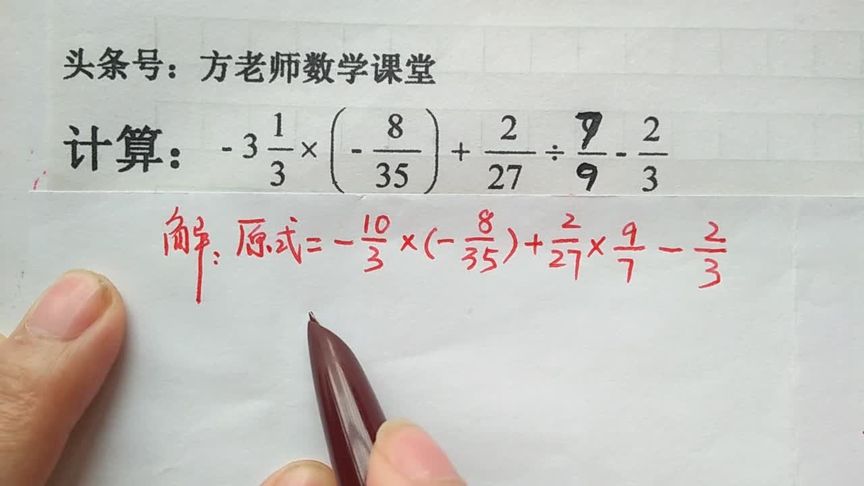 头条号：方老师数学课堂
计算： -3 1/3 × (- 8/35) + 2/27 ÷ 7/9 - 2/3
解：原式= - 10/3 × (- 8/35) + 2/27 × 9/7 - 2/3